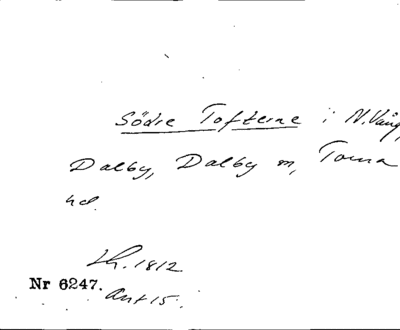 Södre Tofterne i N. Vång,
Dalby, Dalby sn, Torna
hd.
Lh. 1812
Nr 6247.
Ant 15.